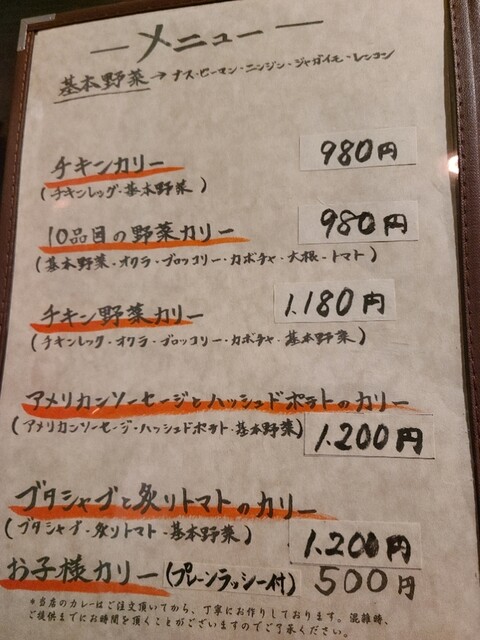 ー メニュー ー
基本野菜→ナス・ピーマン・ニンジン・ジャガイモ・レンコン
チキンカリー 980円
(チキンレッグ・基本野菜)
10品目の野菜カリー 980円
(基本野菜・オクラ・ブロッコリー・カボチャ・大根・トマト)
チキン野菜カリー 1.180円
(チキンレッグ・オクラ・ブロッコリー・カボチャ・基本野菜)
アメリカンソーセージとハッシュドポテトのカリー
(アメリカンソーセージ・ハッシュドポテト・基本野菜) 1.200円
ブタシャブと炙りトマトのカリー
(ブタシャブ・炙りトマト・基本野菜) 1.200円
お子様カリー(プレーンラッシー付) 500円
*当店のカレーはご注文頂いてから、丁寧にお作りしております。混雑時、
ご提供までにお時間を頂くことがございますのでご了承ください。